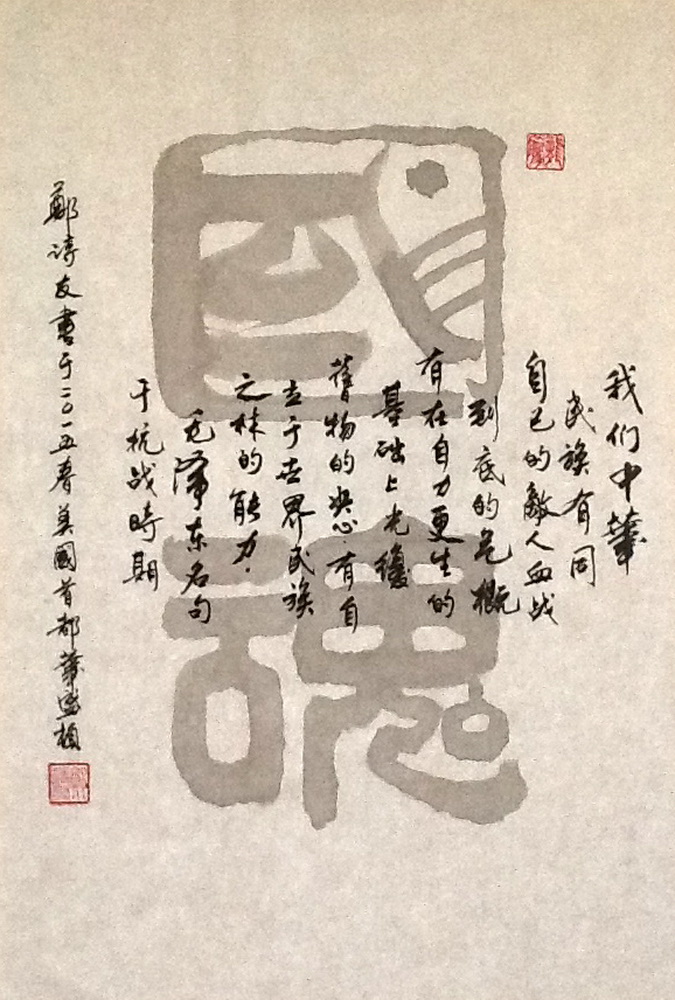 國魂
我们中華
民族有同
自己的敵人血战
到底的气概
有在自力更生的
基础上光復
舊物的决心·有自
立于世界民族
之林的能力·
毛澤东名句
于抗战時期
鄭友書于二〇一五春美國首都華盛頓